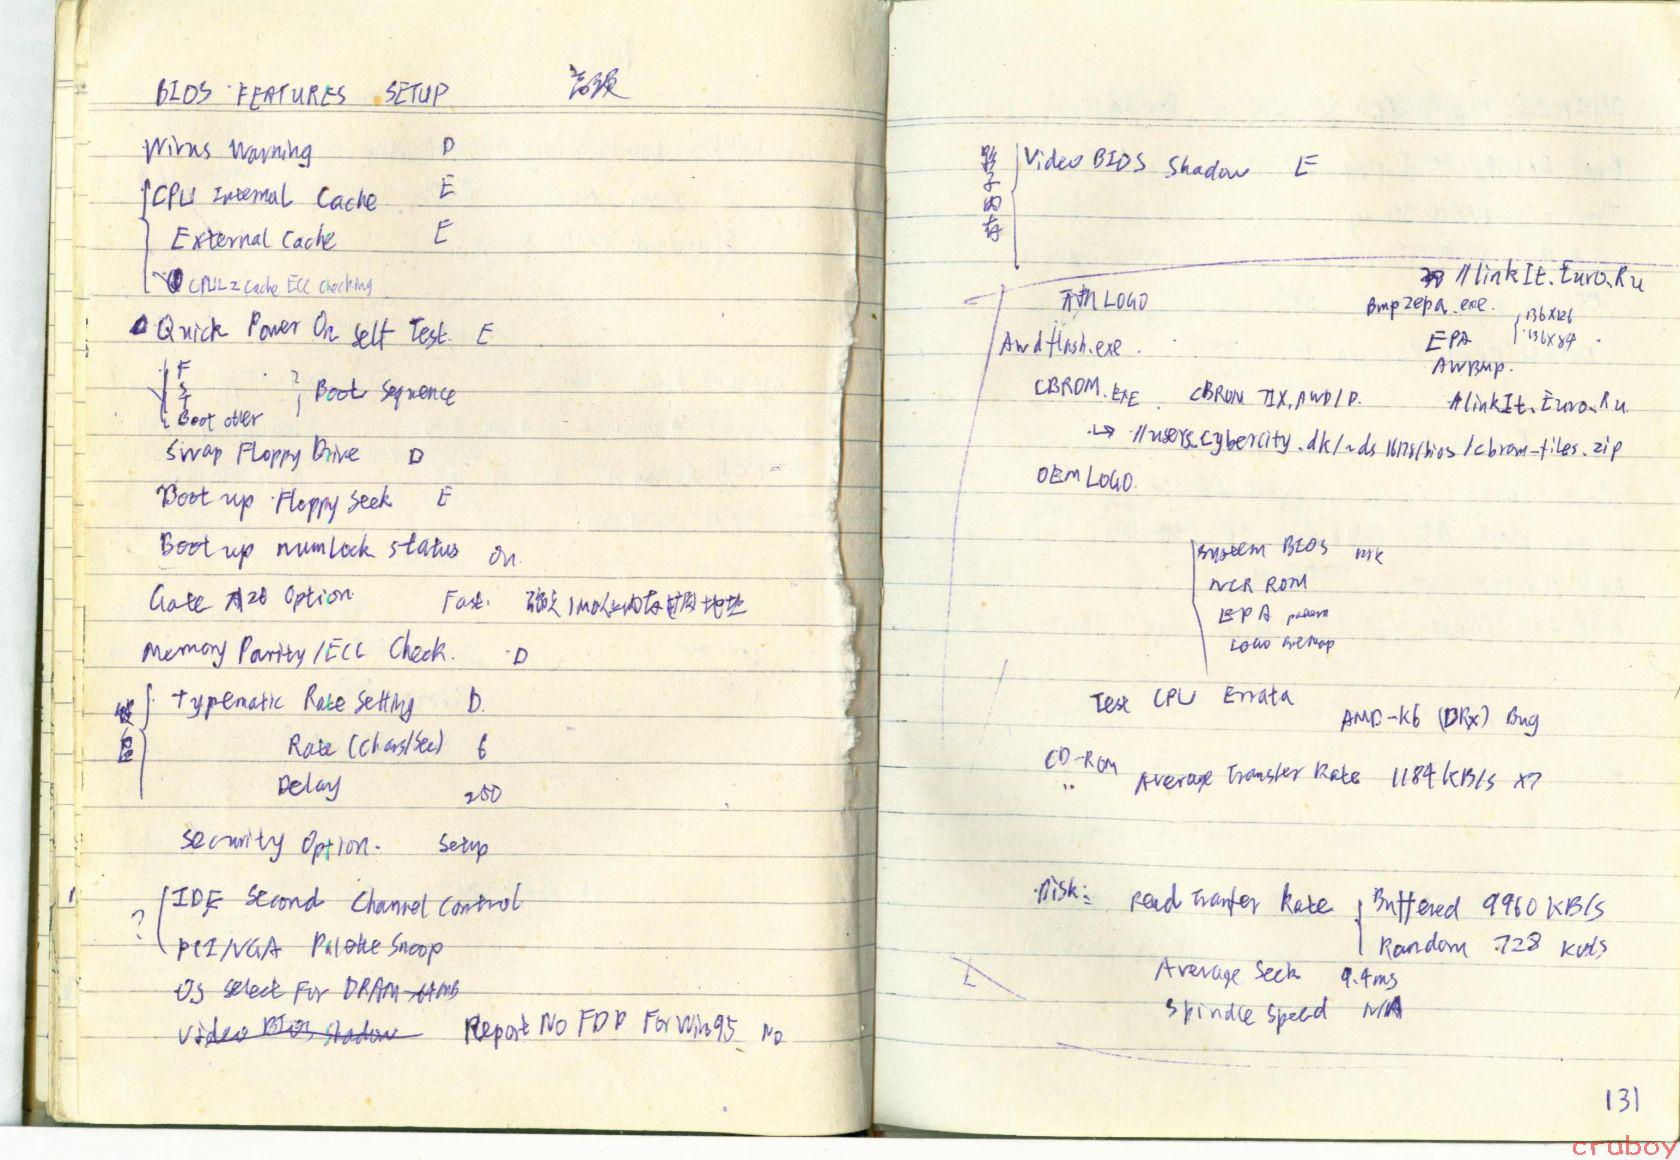 BIOS FEATURES SETUP 高级
Virus Warning D
CPU Internal Cache E
External Cache E
CPU L2 Cache ECC Checking
Quick Power On Self Test. E
F
Boot other
? Boot Sequence
Swap Floppy Drive D
Boot up Floppy Seek E
Boot up numlock status On.
Gate A20 Option Fast. 1M以上内存 地址
Memory Parity/ECC Check. D
键盘
Typematic Rate Setting D.
Rate (Chars/Sec) 6
Delay 250
Security Option. Setup
? IDE Second Channel Control
PCI/VGA Palette Snoop
OS Select For DRAM >64MB
Video BIOS Shadow Report No FDD For Win95 No
影子内存
Video BIOS Shadow E
//linkIt.Euro.Ru
开机LOGO
Bmp2epa.exe. 136X126
EPA 136X84
Awdflash.exe.
AWBmp.
CBROM.EXE. CBROM AWD/D. AlinkIt.Euro.Ru
→ //users.cybercity.dk/~ds16178/bios/cbrom-files.zip
OEM LOGO.
System BIOS
NCR ROM
EPA pattern
LOGO BitMap
Test CPU Errata
AMD-K6 (DRx) Bug
CD-ROM
Average Transfer Rate 1184KB/s X7
Disk: Read Tranfer Rate Buffered 9960 KB/s
Random 728 KB/s
Average Seek 9.4ms
Spindle Speed N/A
131
cruboy